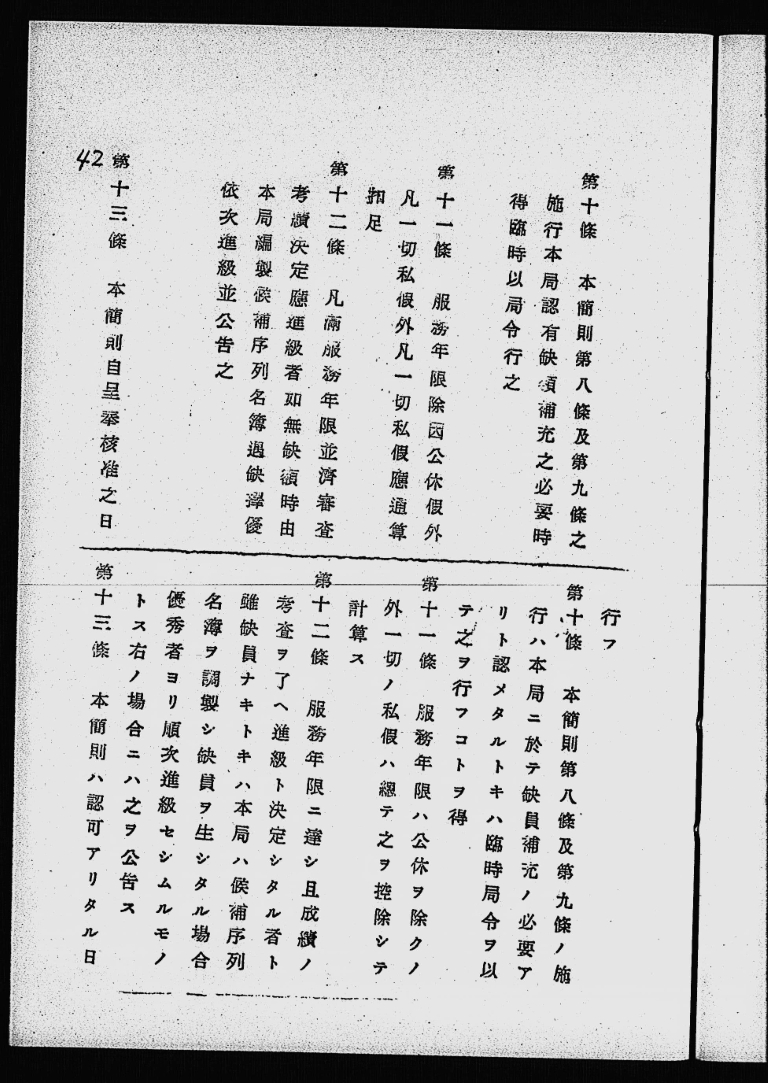 第十條　本簡則第八條及第九條之
施行本局認有缺額補充之必要時
得臨時以局令行之
第十一條　服務年限除因公休假外
凡一切私假外凡一切私假應通算
扣足
第十二條　凡滿服務年限並濟審査
考讚決定應進級者如無缺額時由
本局編製候補序列名簿過缺擇優
依次進級並公告之
第十三條　本簡則自呈奉核准之日
42
行フ
第十條　本簡則第八條及第九條ノ施
行ハ本局ニ於テ缺員補充ノ必要ア
リト認メタルトキハ臨時局令ヲ以
テ之ヲ行フコトヲ得
第十一條　服務年限ハ公休ヲ除クノ
外一切ノ私假ハ總テ之ヲ控除シテ
計算ス
第十二條　服務年限ニ達シ且成績ノ
考査ヲ了ヘ進級ト決定シタル者ト
雖缺員ナキトキハ本局ハ候補序列
名簿ヲ調製シ缺員ヲ生シタル場合
優秀者ヨリ順次進級セシムルモノ
トス右ノ場合ニハ之ヲ公告ス
第十三條　本簡則ハ認可アリタル日